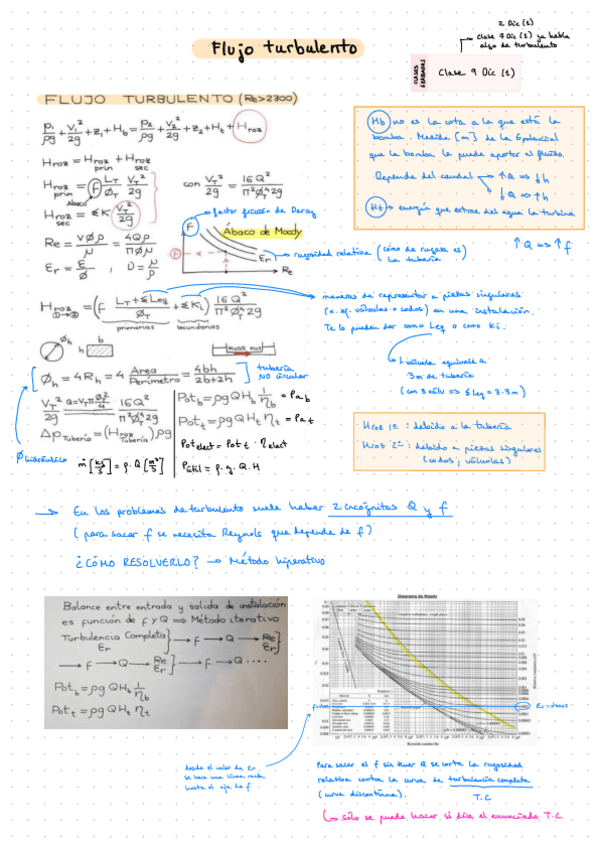 2 Dic (1)
Clase 7 Dic (1) ya habla
algo de turbulento
Flujo turbulento
CLASES GRABADAS
Clase 9 Dic (1)
FLUJO TURBULENTO (Re>2300)
p₁/ρg + v₁²/2g + z₁ + H_b = p₂/ρg + v₂²/2g + z₂ + H_t + H_roz
H_roz = H_roz prin + H_roz sec
H_roz prin = f L_T/Ø_T V_T²/2g con V_T²/2g = 16Q²/π²Ø_T⁴2g
Abaco
H_roz sec = ΣK V_T²/2g
Re = vØρ/μ = 4Qρ/πØμ
E_r = E/Ø , υ = μ/ρ
factor fricción de Darcy
f
Ábaco de Moody
Er
Re
rugosidad relativa (cómo de rugosa es)
la tubería
Hb no es la cota a la que está la
bomba. Medida [m] de la Epotencial
que la bomba le puede aportar al fluido.
Depende del caudal ↑Q ⇒ ↓h
↓Q ⇒ ↑h
Ht → energía que extrae del agua la turbina
↑Q ⇒ ↑f
H_roz ①→② = (f L_T+ΣLeq/Ø_T + ΣK_i) 16Q²/π²Ø_T⁴2g
primarias secundarias
maneras de representar a piezas singulares
(p. ej. válvulas o codos) en una instalación.
Te lo pueden dar como Leq o como Ki.
1 válvula equivale a
3m de tubería
Ø_h b h
[Ø_h = 4R_h = 4 Area/Perímetro = 4bh/2b+2h] tubería NO circular
V_T²/2g Q=V_TπØ_T²/4 16Q²/π²Ø_T⁴2g
Δp Tubería = (H_roz Tubería) ρg
Ø hidráulico
ṁ [kg/s] = ρ·Q [m³/s]
Pot_b = ρgQH_b 1/η_b = Pab
Pot_t = ρgQH_t η_t = Pat
Pot elect = Pot t · η elect
Pútil = ρ·g·Q·H
Hroz 1ª: debido a la tubería
Hroz 2ª: debido a piezas singulares
(codos, válvulas)
→ En los problemas de turbulento suele haber 2 incógnitas Q y f
(para sacar f se necesita Reynols que depende de f)
¿CÓMO RESOLVERLO? → Método hiperativo
Balance entre entrada y salida de instalación
es función de f y Q ⇒ Método iterativo
Turbulencia Completa Er } → f → Q → Re Er }
→ f → Q → Re Er } → f → Q ....
Pot_b = ρgQH_b 1/η_b
Pot_t = ρgQH_t η_t
Diagrama de Moody
desde el valor de Er,
se hace una línea recta
hasta el eje de f
Para sacar el f sin tener Q se corta la rugosidad
relativa contra la curva de turbulencia completa
(curva discontinua). T.C
↳ sólo se puede hacer si dice el enunciado T.C.